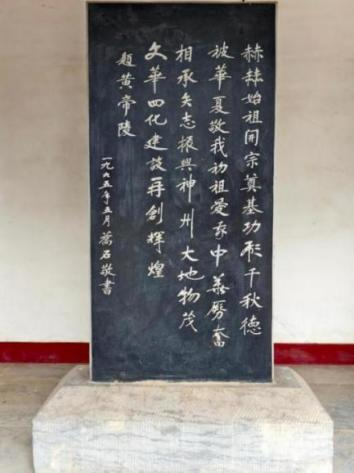 赫赫始祖開宗奠基功彰千秋德
被華夏敬我初祖愛我中華勵奮
相承矢志振興神州大地物茂
文華四化建設再創輝煌
題黃帝陵
五年五月萬石敬書